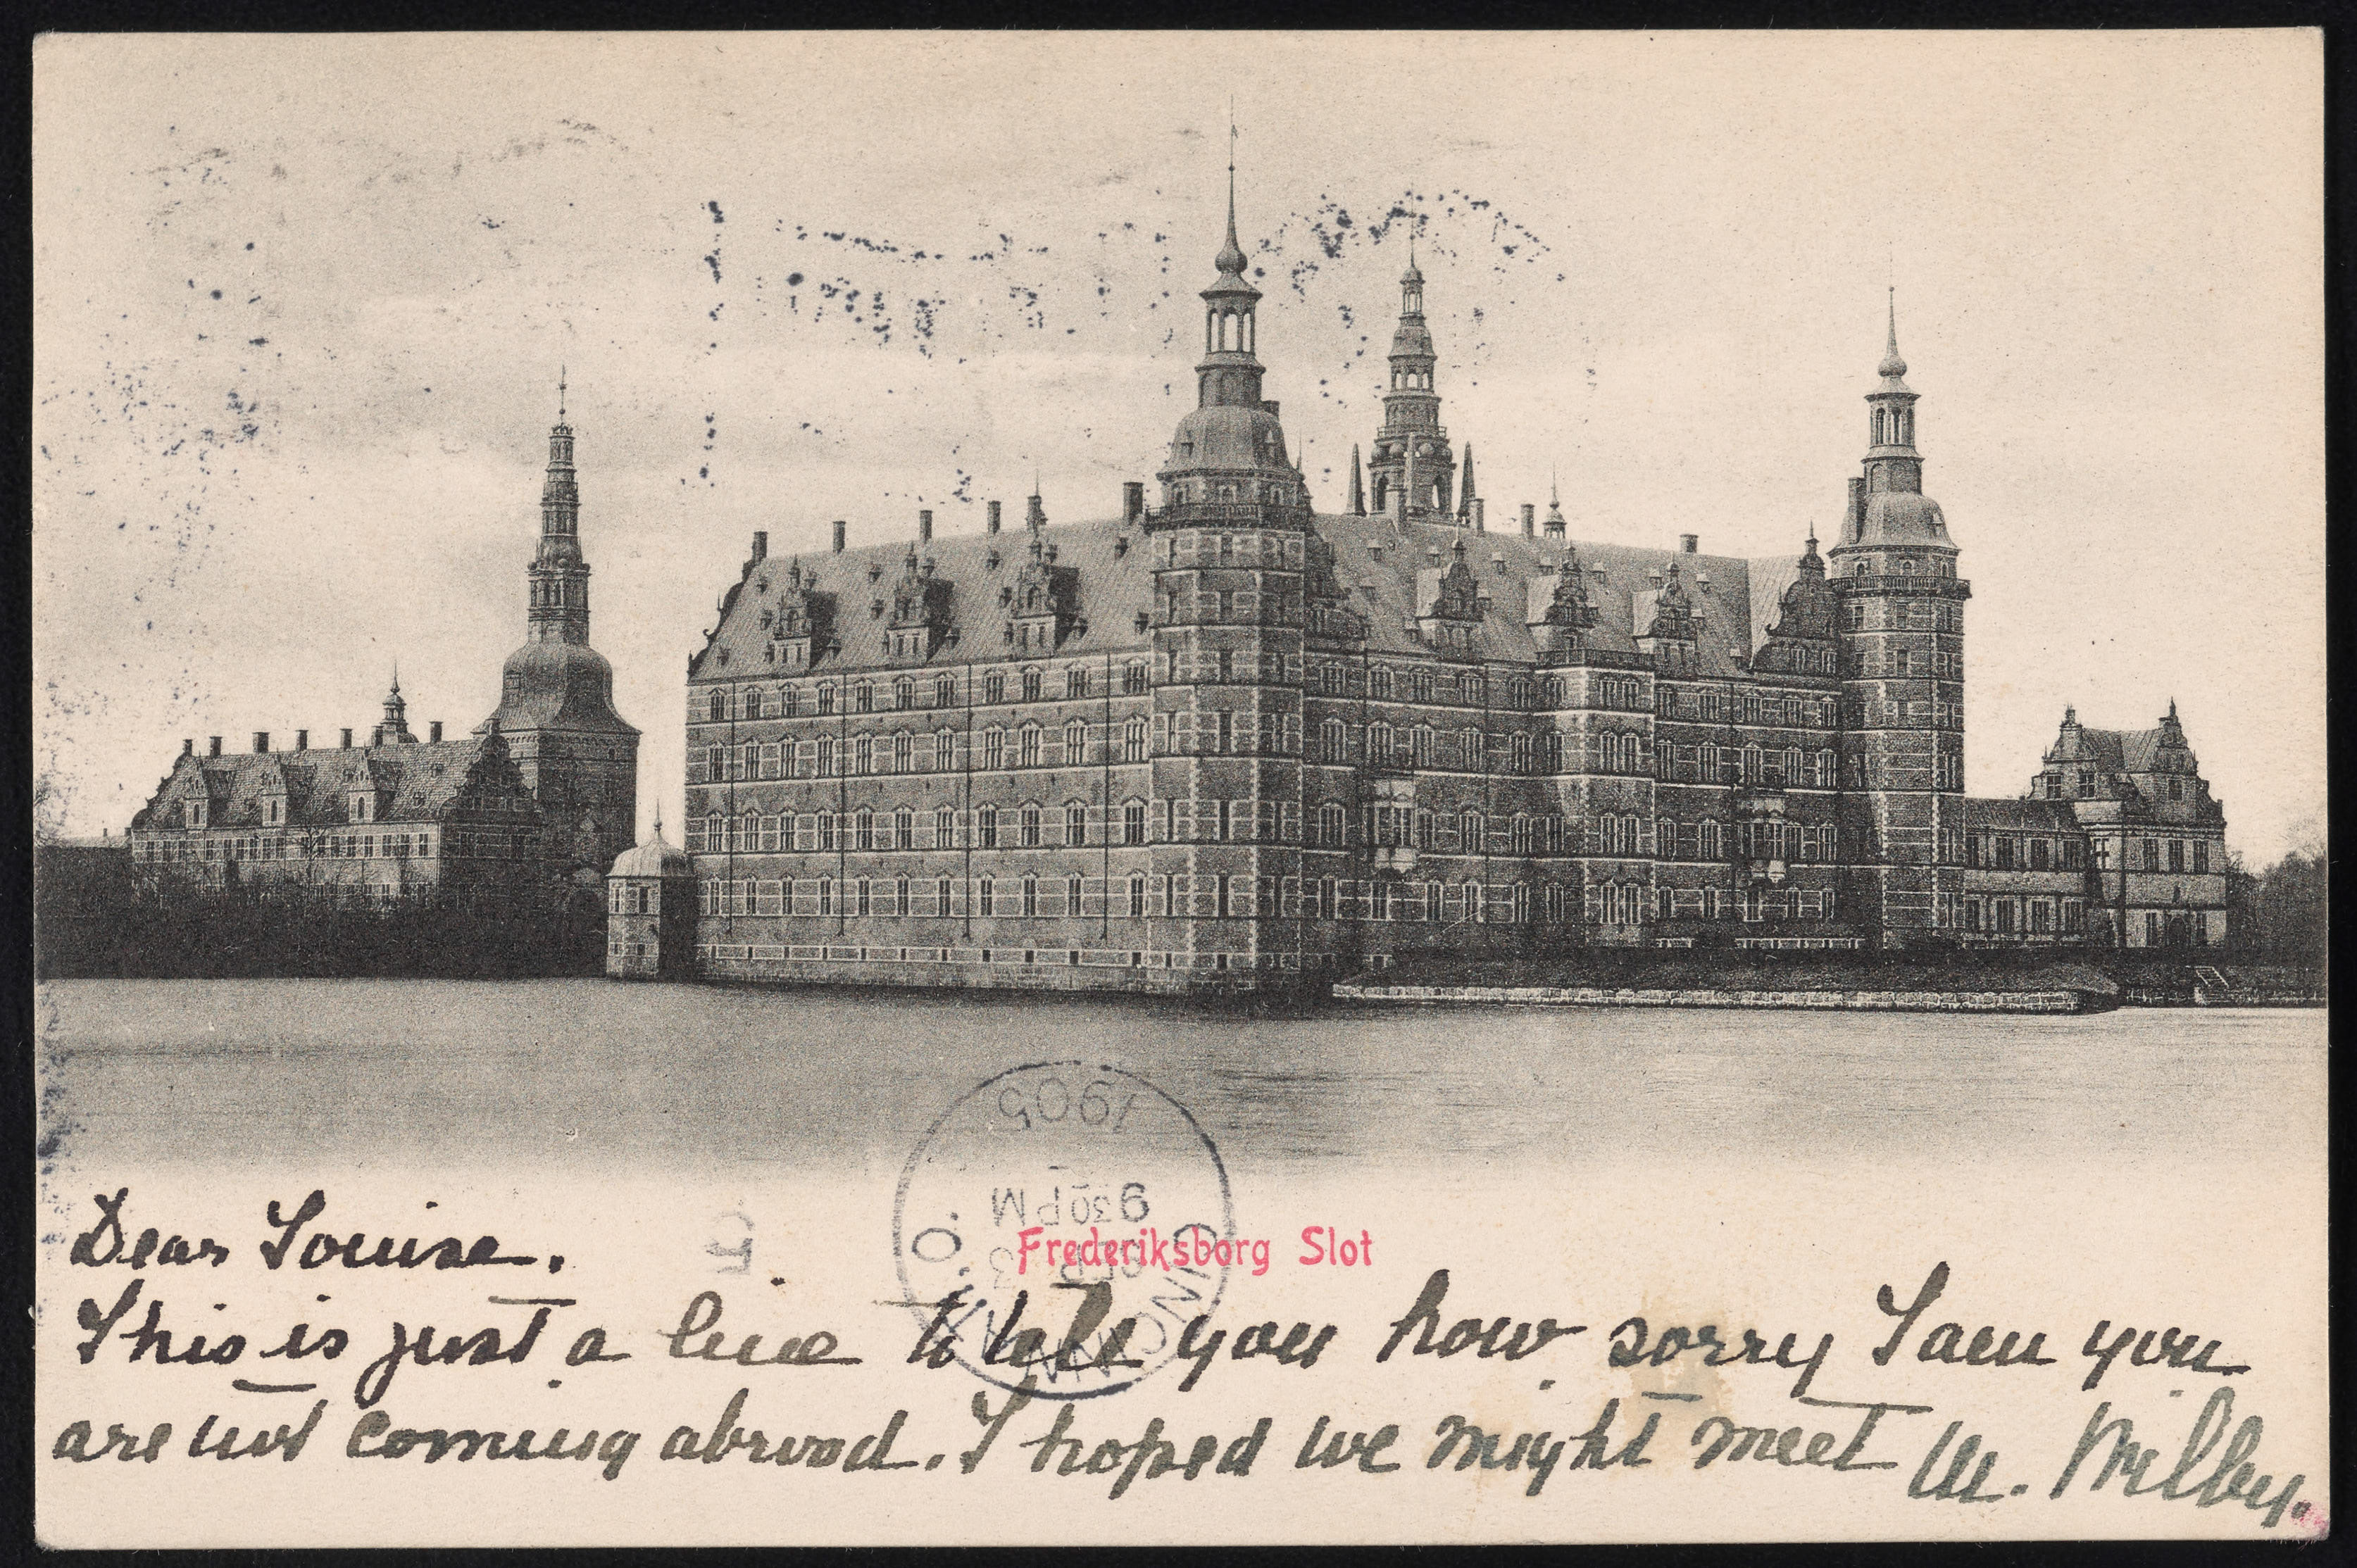 Frederiksborg Slot
CINCINNATI, O.
SEP
930 PM
1905
Dear Louise.
This is just a line to tell you how sorry I am you
are not coming abroad. I hoped we might meet M. Milby.